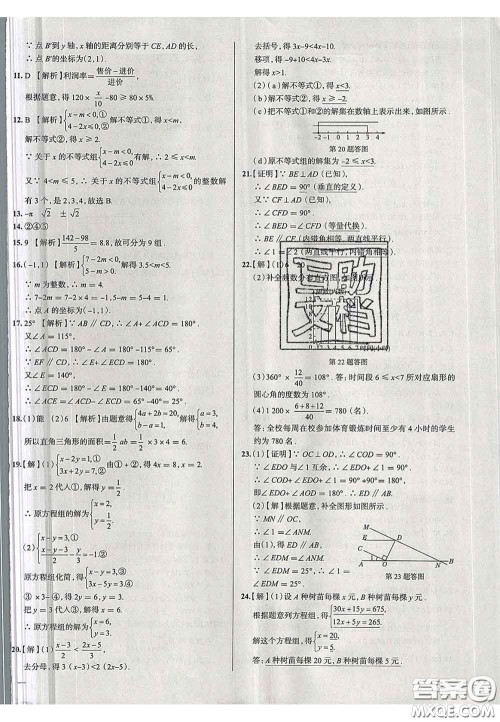 ∴ 点 B′到 y 轴, x 轴的距离分别等于 CE, AD 的长.
∴ 点 B′的坐标为(2,1).
11. D 【解析】利润率=(售价-进价)/进价,
根据题意,得 120× x/10 -80≥80×5%.
12. B 【解析】{x-m<0,① 4-2x≤0② 解不等式①,得 x<m,
解不等式②,得 x≥2.
∵ 关于 x 的不等式组{x-m<0, 4-2x≤0有解,∴ 2≤x<m.
又∵ 4<m≤5,∴ 关于 x 的不等式组{x-m<0, 4-2x≤0的整数解
有 3 个,是 2,3,4,故选 B.
13. -π √2 ±√2
14. ②④⑤
15. 9 【解析】(142-98)/5=8.8,故可分为 9 组.
16. (-1,1) 【解析】由题意得{7-2m<0, 5-m>0.
∵ m 为整数,∴ m=4.
∴ 7-2m=7-8=-1, 5-m=5-4=1.
∴ 点 A 的坐标为(-1,1).
17. 25° 【解析】∵ AB∥CD,∴ ∠A+∠ACD=180°.
又∵ ∠A=115°,
∴ ∠ACD=180°-∠A=180°-115°=65°.
又∵ ∠E=90°,
∴ ∠ECD=180°-∠E=180°-90°=90°.
∴ ∠ACE=∠ECD-∠ACD=90°-65°=25°.
18. (1)能 (2)6 【解析】由题意得{4a+2b=20, b-a=1, 解得{a=3, b=4,
所以直角三角形的面积=1/2 ab=1/2×3×4=6.
19. 【解】(1){x-2y=3,① 3x+2y=5.② 由①+②,得 4x=8,x=2.
把 x=2 代入①,解得 y=-1/2.
∴ 原方程组的解为{x=2, y=-1/2.
(2){x-y=3,① (x-y)/3-(x-3)/2=-1/6.②
原方程组化简,得{x-y=3,③ 3x-5y=7.④
③×3-④,得 2y=2,y=1.
把 y=1 代入③,解得 x=4.
∴ 原方程组的解为{x=4, y=1.
20. 【解】(1)(x-3)/2<(2x-5)/3.
去分母,得 3(x-3)<2(2x-5).
去括号,得 3x-9<4x-10.
移项,得-9+10<4x-3x.
解得 x>1.
(2)(a)解不等式①,得 x<3.
(b)解不等式②,得 x≥-2.
(c)把不等式①和②的解集在数轴上表示出来,如图所示.
-3 -2 -1 0 1 2 3 4
第 20 题答图
(d)原不等式组的解集为-2≤x<3.
21. 【证明】∵ BE⊥AD(已知),
∴ ∠BED=90°(垂直的定义).
又∵ CF⊥AD(已知),
∴ ∠CFD=90°.
∴ ∠BED=∠CFD(等量代换).
∴ BE∥CF(同位角相等,两直线平行).
∴ ∠1=∠2(两直线平行,内错角相等).
22. 【解】(1)40
三助文档
第 22 题答图
(3)360°×12/40=108°. 答:时间段 6≤x<7 所对应扇形的
圆心角的度数为 108°.
(4)2000×(6+8+12)/40=780(名).
答:全校每周在校参加体育锻炼时间至少有 4 小时的学生
约为 780 名.
23. (1)【证明】∵ OC⊥OD,∴ ∠COD=90°.
∴ ∠COA+∠DOB=180°-∠COD=90°.
又∵ ∠EDO+∠COA=90°,∴ ∠EDO=∠DOB.
∴ DE∥AB.
(2)【解】根据题意,补全图形如图所示.
∵ MN∥OC,
∴ ∠M=∠AOC.
又∵ ∠AOC=25°,
∴ ∠M=25°.
又∵ DE∥AB,
∴ ∠EDM=∠M.
∴ ∠EDM=25°.
第 23 题答图
24. 【解】(1)设 A 种树苗每棵 x 元,B 种树苗每棵 y 元.
根据题意列方程组,得{30x+15y=675, 12x+5y=265.
解这个方程组,得{x=20, y=5.
答:A 种树苗每棵 20 元,B 种树苗每棵 5 元.
答案圈
MXQE.COM